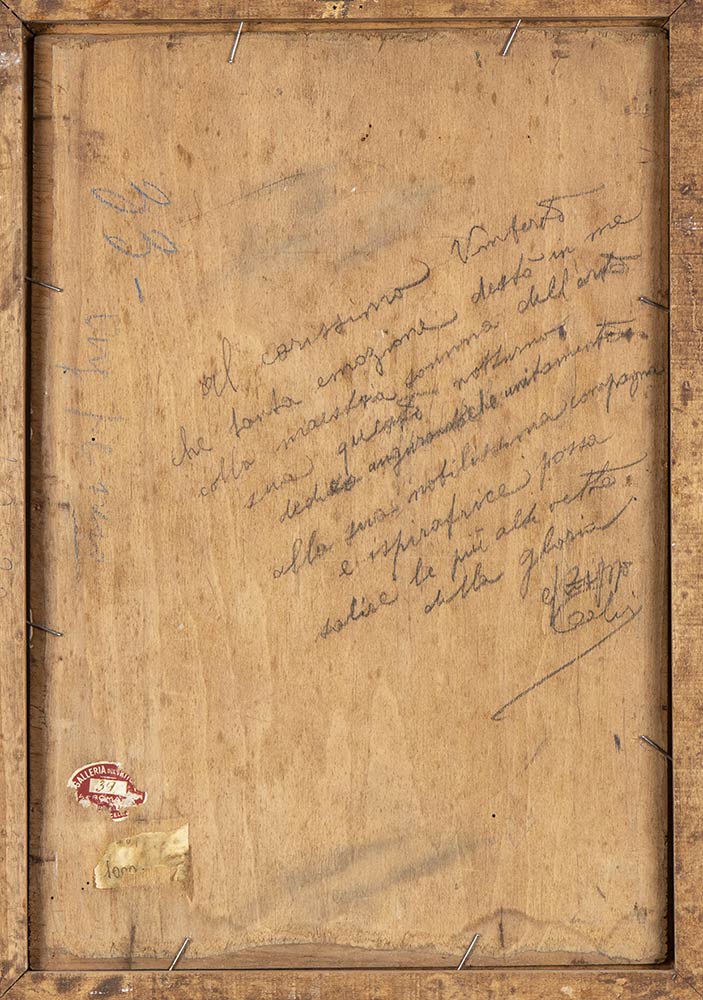 al carissimo Umberto
che tanta emozione destò in me
colla maestria somma dell'arte
sua questo notturno
dedico augurandoche unitamente
alla sua nobilissima compagna
e ispiratrice possa
salire le più alte vette
della gloria
33-
GALLERIA
39
ROMA